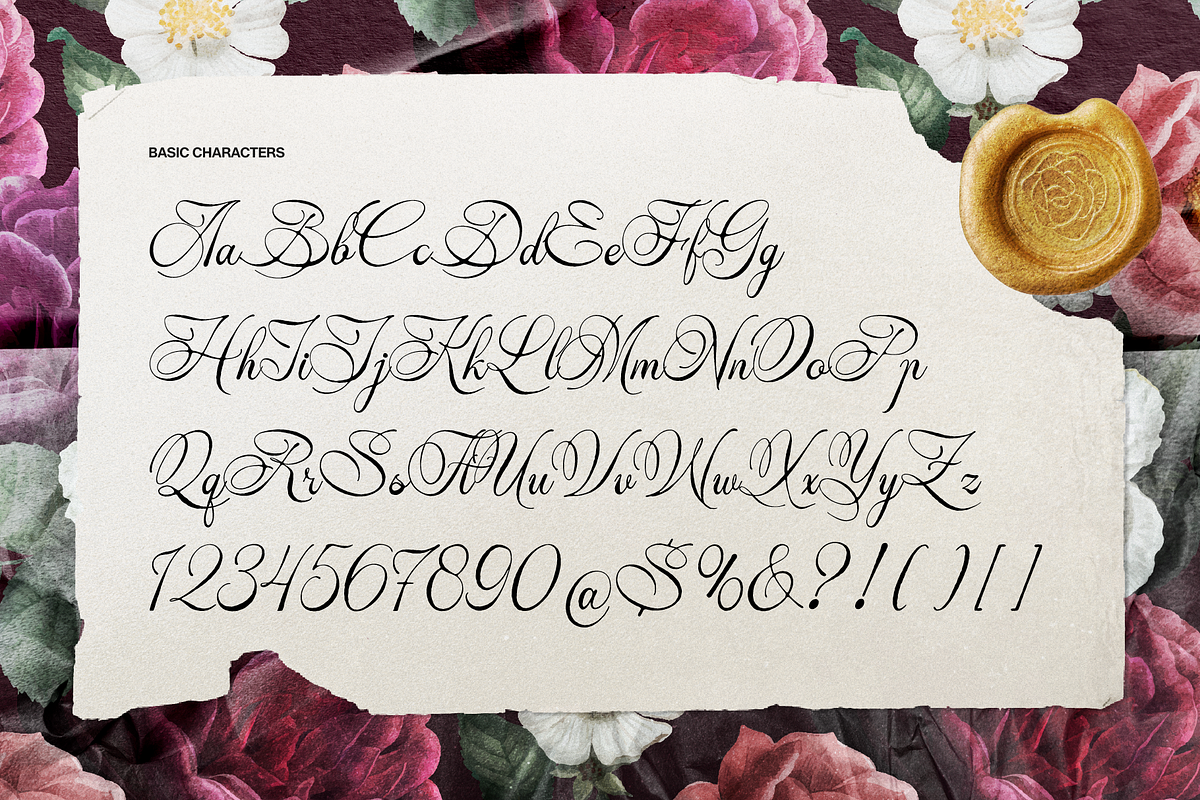 BASIC CHARACTERS
AaBbCcDdEeFfGg
HhIiJjKkLlMmNnOoPp
QqRrSsTtUuVvWwXxYyZz
1234567890@$%&?!()[]